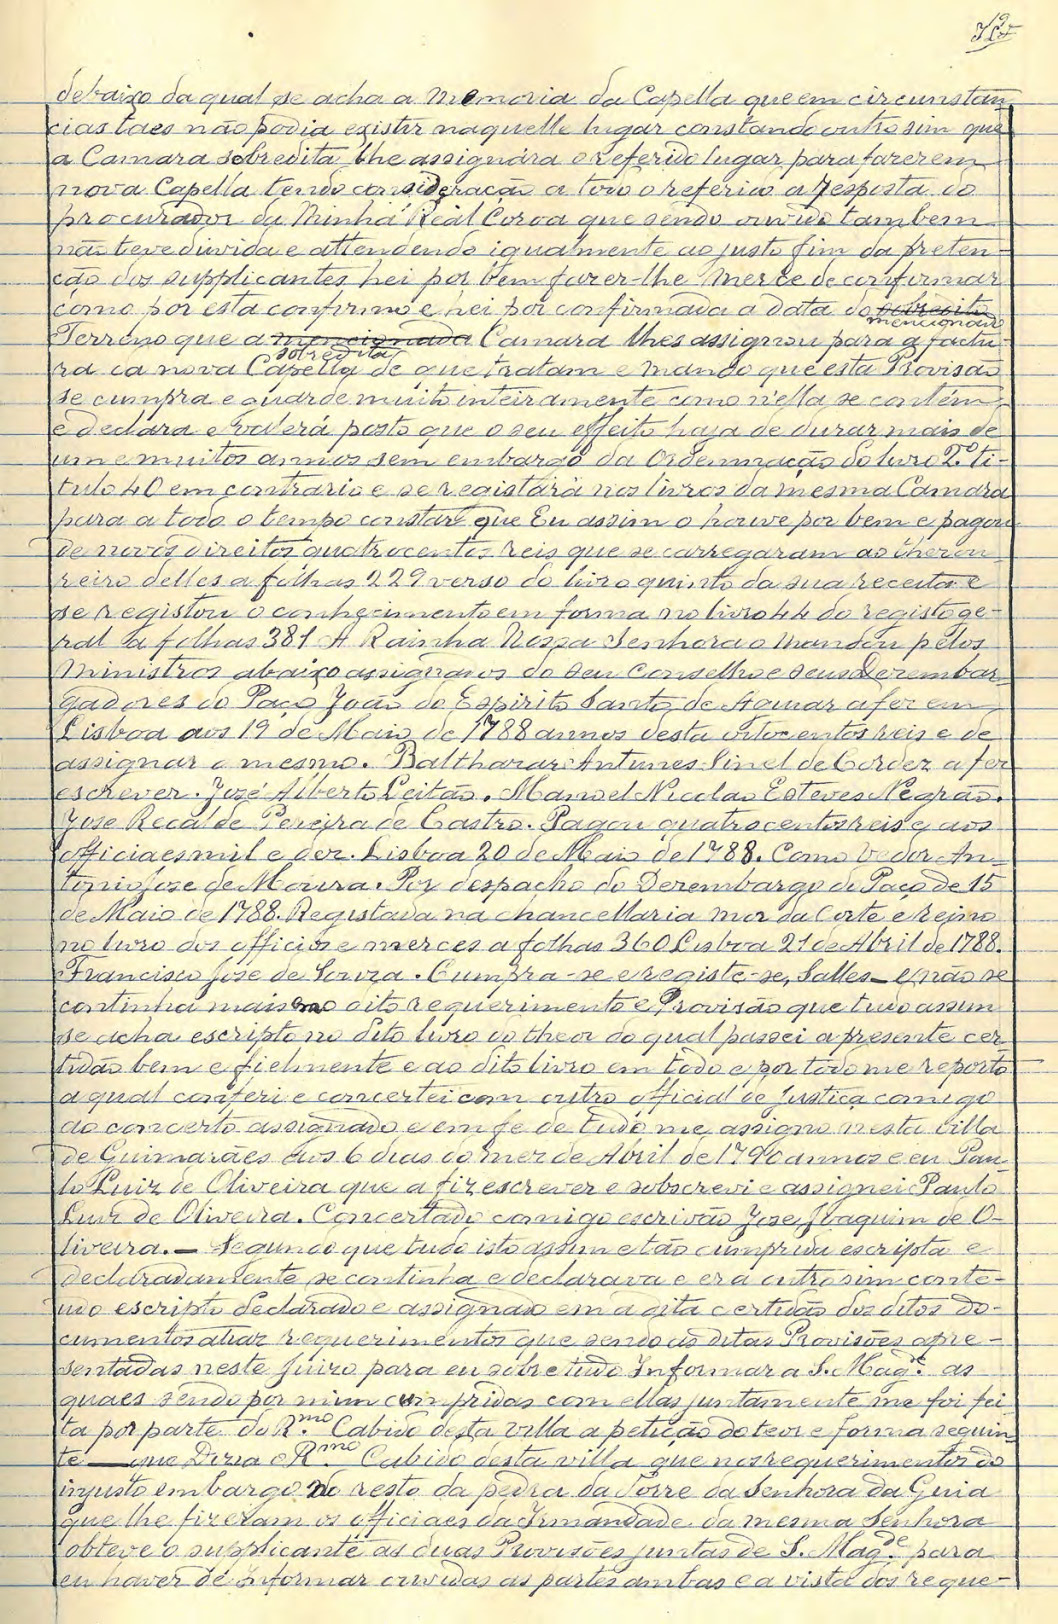 debaixo da qual se acha a Memoria da Capella que em circunstan-
cias taes não podia existir naquelle lugar constando outro sim que
a Camara sobredita lhe assignára o referido lugar para fazerem
nova Capella tendo consideração a todo o referido a resposta do
procurador da Minha Real Coroa que sendo ouvido tambem
não teve duvida e attendendo igualmente ao justo fim da preten-
ção dos supplicantes hei por bem fazer-lhe Merce de confirmar
como por esta confirmo e hei por confirmada a data do sobredito
mencionado
Terreno que a mencionada Camara lhes assignou para a factu-
sobredita
ra da nova Capella de que tratam e mando que esta Provisão
se cumpra e guarde muito inteiramente como n'ella se contém
e declara e valerá posto que o seu effeito haja de durar mais de
um e muitos annos sem embargo da Ordennação do livro 2.º ti-
tulo 40 em contrario e se registará nos livros da mesma Camara
para a todo o tempo constar que Eu assim o houve por bem e pagou
de novos direitos quatrocentos reis que se carregaram ao thesou
reiro delles a folhas 229 verso do livro quinto da sua receita e
se registou o conhecimento em forma no livro 44 do registo ge-
ral a folhas 381 A Rainha Nossa Senhora o mandou pelos
Ministros abaixo assignados do seu Conselho e seus Dezembar-
gadores do Paço João do Espirito Santo de Aguiar a fez em
Lisboa aos 19 de Maio de 1788 annos desta oitocentos reis e de
assignar o mesmo. Balthazar Antunes Sinel de Cordez a fez
escrever. José Alberto Leitão. Manoel Nicolao Esteves Negrão.
José Ricalde Pereira de Castro. Pagou quatrocentos reis e aos
officiaes mil e dez. Lisboa 20 de Maio de 1788. Como Vedor An-
tonio Jose de Moura. Por despacho do Dezembargo do Paço de 15
de Maio de 1788. Registada na chancellaria mor da Corte e reino
no livro dos officios e merces a folhas 360 Lisboa 21 de Abril de 1788.
Francisco Jose de Souza. Cumpra-se e registe-se, Salles — E não se
continha mais no dito requerimento e Provisão que tudo assim
se acha escripto no dito livro do theor do qual passei a presente cer-
tidão bem e fielmente e ao dito livro em todo e por todo me reporto
a qual conferi e concertei com outro official de Justiça comigo
ao concerto assignado e em fé de tudo me assigno nesta villa
de Guimarães aos 6 dias do mez de Abril de 1790 annos e eu Pau-
lo Luiz de Oliveira que a fiz escrever e sobscrevi e assignei Paulo
Luiz de Oliveira. Concertado comigo escrivão Jose Joaquim de O-
liveira. — Segundo que tudo isto assim e tão cumprida escripta e
declaradamente se continha e declarava e era outro sim conte-
udo escripto declarado e assignado em a dita certidão dos ditos do-
cumentos atraz requerimentos que sendo as ditas Provisões apre-
sentadas neste Juizo para eu sobre tudo informar a S. Mag.e as
quaes sendo por mim cumpridas com ellas juntamente me foi fei
ta por parte do R.mo Cabido desta villa a petição do teor e forma seguin
te — Diz o R.mo Cabido desta villa que nos requerimentos do
injusto embargo do resto da pedra da Torre da Senhora da Guia
que lhe fizeram os officiaes da Irmandade da mesma Senhora
obteve o supplicante as duas Provisões juntas de S. Mag.de para
eu haver de informar ouvidas as partes ambas e a vista dos reque-